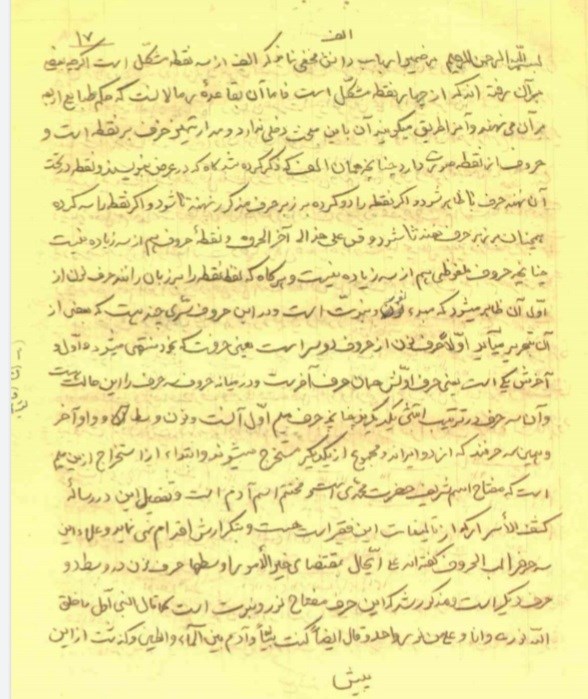 الف
۱۷
بسم الله الرحمن الرحیم بر ضمیر ارباب دانش مخفی نماند که الف از سه نقطه مشکّل است اگرچه بعضی
برآن رفته اند که از چهار نقطه مشکّل است فاما آن بقاعدهٔ رمالانست که حکم طبایع اربعه
برآن می نهند و آنرا طریق میگویند آن باین مبحث دخلی ندارد و مدار تمیز حرف بر نقطه است و
حروف از نقطه صورت دارد چنانچه همان الف که ذکر کرده شد که در عرض بنویسند و نقطه در تحت
آن نهند حرف با ظاهر شود و اگر نقطه را دو کرده بر زبر حرف مذکور نهند تا شود و اگر نقطه را سه کرده
همچنان بر زبر حرف نهند ثا شود و قس علی هذا الی آخر الحروف و نقطهٔ حروف هم از سه زیاده نیست
چنانچه حروف ملفوظی هم از سه زیاده نیست و هرگاه که لفظ نقطه را بر زبان رانند حرف نون از
اوّل آن ظاهر میشود که مبدء نور و نبوّت است و در این حروف سرّی چند هست که بعضی از
آن تحریر میآید اوّلا حرف نون از حروف دوسر است یعنی حروفی که بخود منتهی میشود و اوّل و
آخرش یکی است یعنی حرف اوّلش همان حرف آخرست و در میانه حروف سه حرف را این حالت هست
و آن سه حرف در ترتیب ابتثی بیکدیگرند چنانچه حرف میم اوّل آنست و نون وسط و واو آخر
و همین سه حرفند که از دوایراند و مجموع از یکدیگر مستخرج میشوند و ابتداء از استخراج از میم
است که مفتاح اسم شریف حضرت محمّدی است و مختم اسم آدم است و تفصیل این در رسالهٔ
کشف الأسرار که از تالیفات این فقیر است هست و بتکرارش اقدام نمی نماید و علماء این
سه حرف را لب الحروف گفته اند علی ایّحال بمقتضای خیر الأمور اوسطها حرف نون در وسط دو
حرف دیگر است و مذکور شد که این حرف مفتاح نور و نبوت است کما قال النبی اوّل ما خلق
الله نوری و انا و علی من نور واحد و قال ایضاً کنت نبیّاً و آدم بین الماء و الطین و گذشت از این
پیش